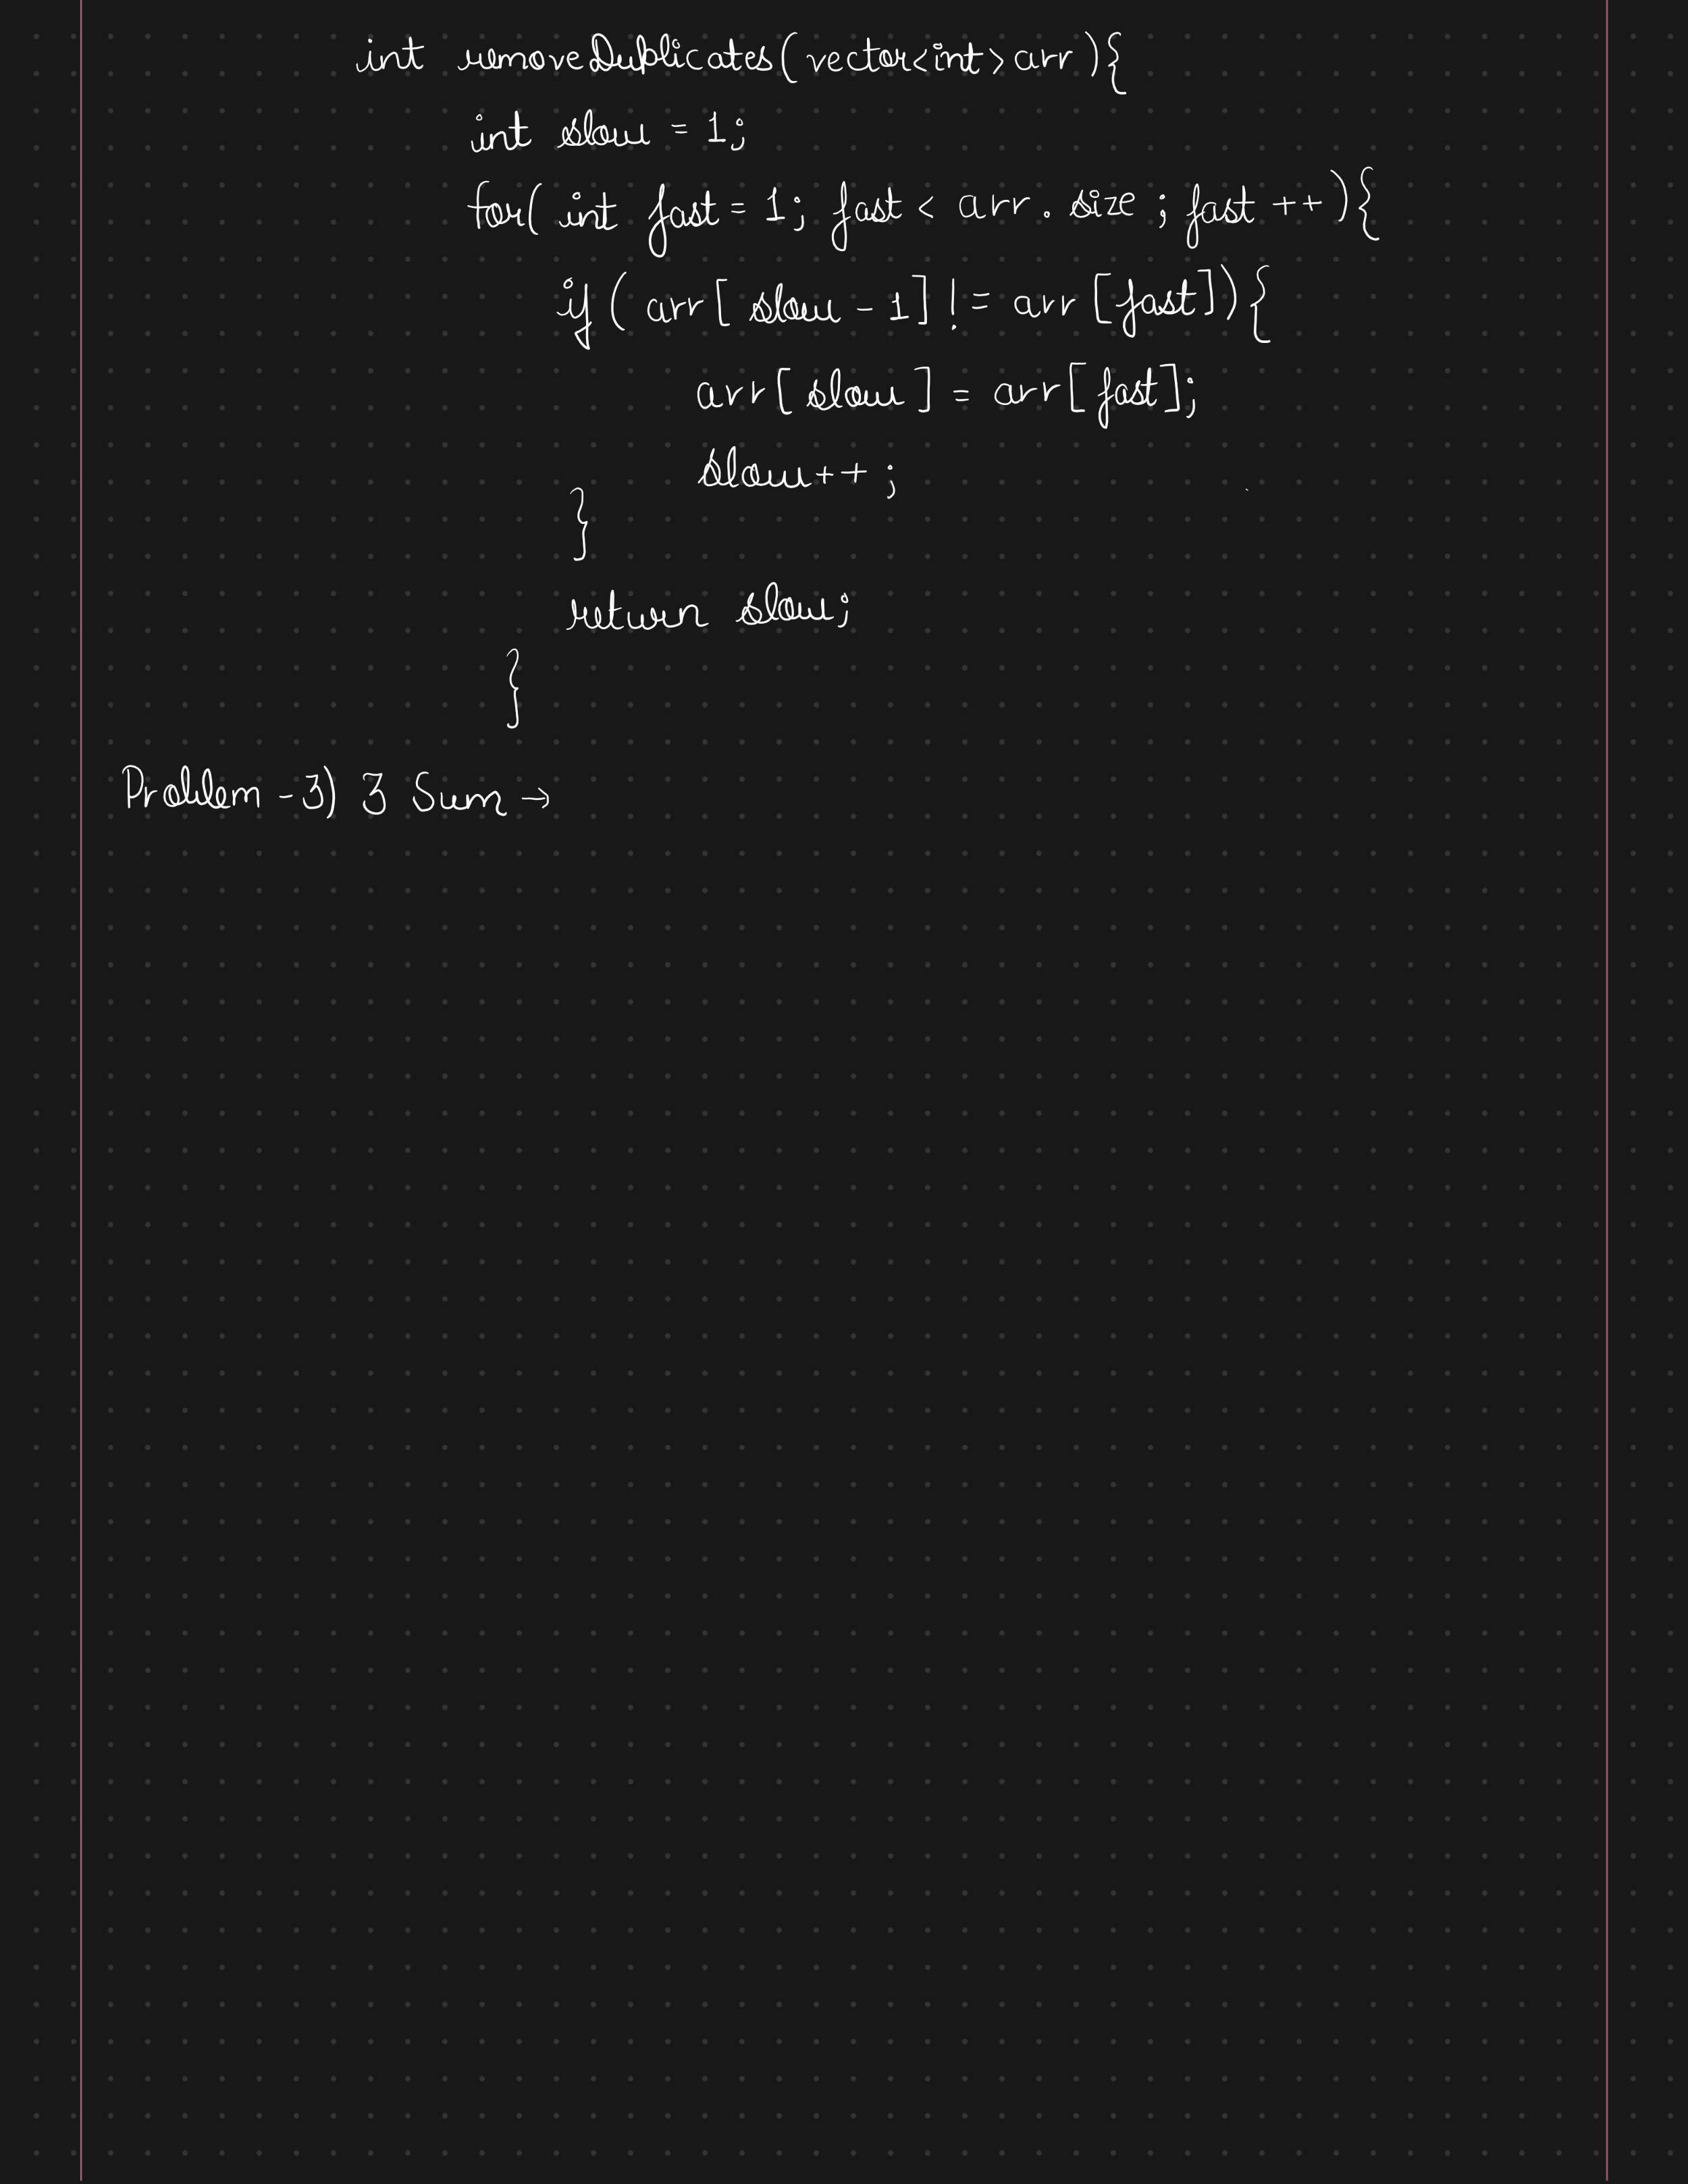 int removeDuplicates(vector<int>arr){
int slow = 1;
for( int fast = 1; fast < arr. size ; fast ++){
if ( arr[ slow - 1] != arr [fast]){
arr[ slow ] = arr[ fast];
slow++ ;
}
return slow;
}
Problem - 3) 3 Sum →